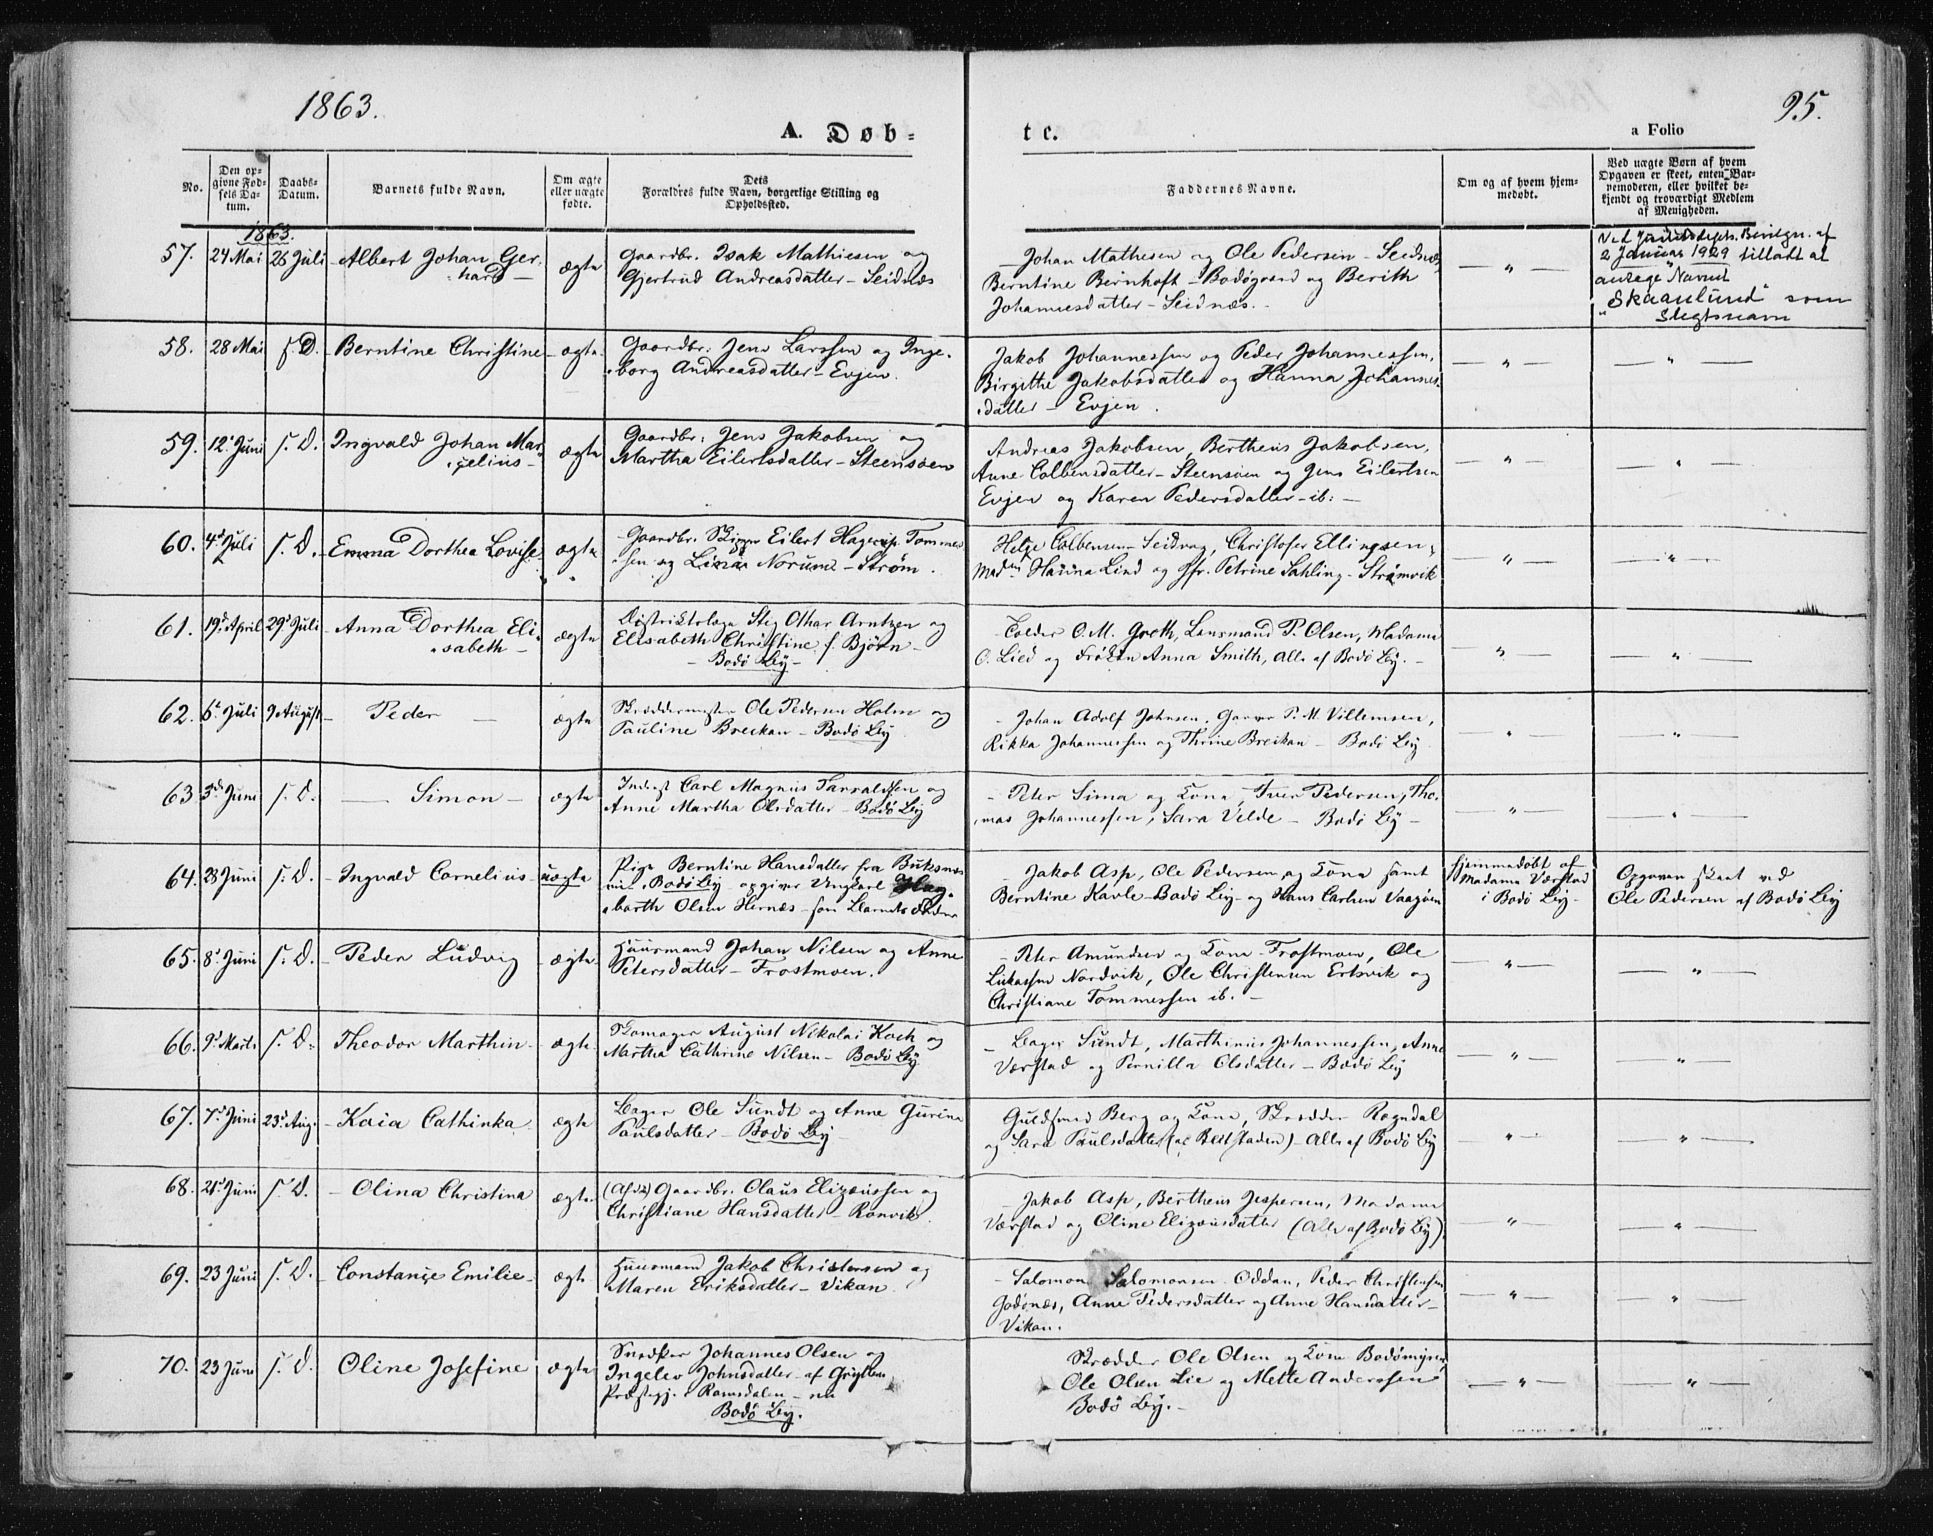 1863.
95.
A. Døb-
te.
a Folio
No.
Den op-
givne Fød-
sels Da-
tum.
Daabs-
Datum.
Barnets fulde Navn.
Om ægte
eller uægte
fødte.
Dets
Forældres fulde Navn, borgerlige Stilling og
Opholdssted.
Faddernes Navne.
Om og af hvem hjem-
medøbt.
Ved uægte Børn af hvem
Opgaven er skeet, enten Bar-
nemoderen, eller hvilket be-
kjendt og troværdigt Medlem
af Menigheden.
1863.
57. 24 Mai 26 Juli Albert Johan Ger-
hard ægte
Gaardbr. Isak Mathiesen og
Gjertrud Andreasdatter - Seidnæs
Johan Mathesen og Ole Pedersen - Seidnæs
Berntine Bernhoft - Bodøgaard og Berith
Johannesdatter - Seidnæs.
Ved Justisdepts. Bevilgn. af
2 Januar 1929 tilladt at
antage Navnet
"Skaanlund" som
Slegtsnavn
58. 28 Mai s. D. Berntine Christine ægte
Gaardbr: Jens Larssen og Inge-
borg Andreasdatter - Evjen.
Jakob Johannessen og Peder Johannessen,
Birgithe Jakobsdatter og Hanna Johannes-
datter - Evjen.
59. 12 Juni s. D. Ingvald Johan Mar-
selius ægte
Gaardbr: Jens Jakobsen og
Martha Eilertsdatter - Steensøen
Andreas Jakobsen, Bertheus Jakobsen,
Anne Colbensdatter - Steensøen og Jens Eilertsen
Evjen og Karen Pedersdatter - ib: -
60. 4 Juli s. D. Emma Dorthea Lovise ægte
Gaardbr. Eilert Hagerup Tommes-
sen og Norum - Strøm.
Helge Colbensen - Seidvag, Christofer Ellingsen,
Madm Hanna Lind og Jfr. Petrine Sahling - Strømvik
61. 19 April 29 Juli Anna Dorthea Eli-
sabeth ægte
Distriktslæge Stig Othar Arntzen og
Elisabeth Christine f. Bjørn -
Bodø By -
Tolder O. M. Groth, Lensmand P. Olsen, Madame
O. Lied og Frøken Anna Smith, Alle af Bodø By. -
62. 6 Juli 9 August Peder ægte
Skræddermester Ole Pedersen Holm og
Pauline Breckan - Bodø By
Johan Adolf Johnsen, Garver P. M. Villemsen,
Rikka Johannessen og Thrine Breikan - Bodø By
63 3 Juni s. D. Simon ægte
Indr. Carl Magnus Tarraldsen og
Anne Martha Olsdatter - Bodø By
Peter Sima og Kone, Iver Pedersen, Tho-
mas Johannessen, Sara Velde - Bodø By -
64. 28 Juni s. D. Ingvald Cornelius uægte
Pige Berntine Hansdatter fra Buksnæs
Bodø By - opgiver Ungkarl Hag-
barth Olsen Hernæs - som Barnets Fader
Jakob Asp, Ole Pedersen og Kone samt
Berntine Kavle - Bodø By - og Hans Carlsen Vaagøen
Hjemmedøbt af
Madame Værstad
i Bodø By -
Opgaven skeet ved
Ole Pedersen af Bodø By
65. 8 Juni s. D. Peder Ludvig ægte
Huusmand Johan Nilsen og Anne
Petersdatter - Frostmoen.
Peter Amundsen og Kone - Frostmoen, Ole
Lukassen Nordvik, Ole Christensen Ertsvik og
Christiane Tommessen ib. -
66. 9 Marts s. D. Theodor Marthin ægte
Skomager August Nikolai Koch og
Martha Cathrine Nilsen - Bodø By
Bager Sundt, Marthinus Johannessen, Anne
Værstad og Pernilla Olsdatter - Bodø By
67. 7 Juni 23 Aug. Kaia Cathinka ægte
Bager Ole Sundt og Anne Gurina
Paulsdatter - Bodø By
Guldsmed Berg og Kone, Skrædder Rogndal
og Sara Paulsdatter (af Beitstaden) - Alle af Bodø By
68. 21 Juni s. D. Olina Christina ægte
Gaardbr. Olaus Elizeussen og
Christiane Hansdatter - Rønvik
Jakob Asp, Bertheus Jespersen, Madame
Værstad og Oline Elizæusdatter (Alle af Bodø By).
69. 23 Juni s. D. Constance Emilie ægte
Huusmand Jakob Christensen og
Maren Eriksdatter - Vikan
Salomon Salomonsen - Oddan, Peder Christensen
Godønæs, Anne Pedersdatter og Anne Hansdatter -
Vikan.
70. 23 Juni s. D. Oline Josefine ægte
Snedker Johannes Olsen og
Ingelev Johnsdatter - af Grytten
Præstegj. i Romsdalen - nu
Bodø By.
Skrædder Ole Olsen og Kone Bodømyren
Ole Olsen Lie og Mette Anderssen
Bodø By. -